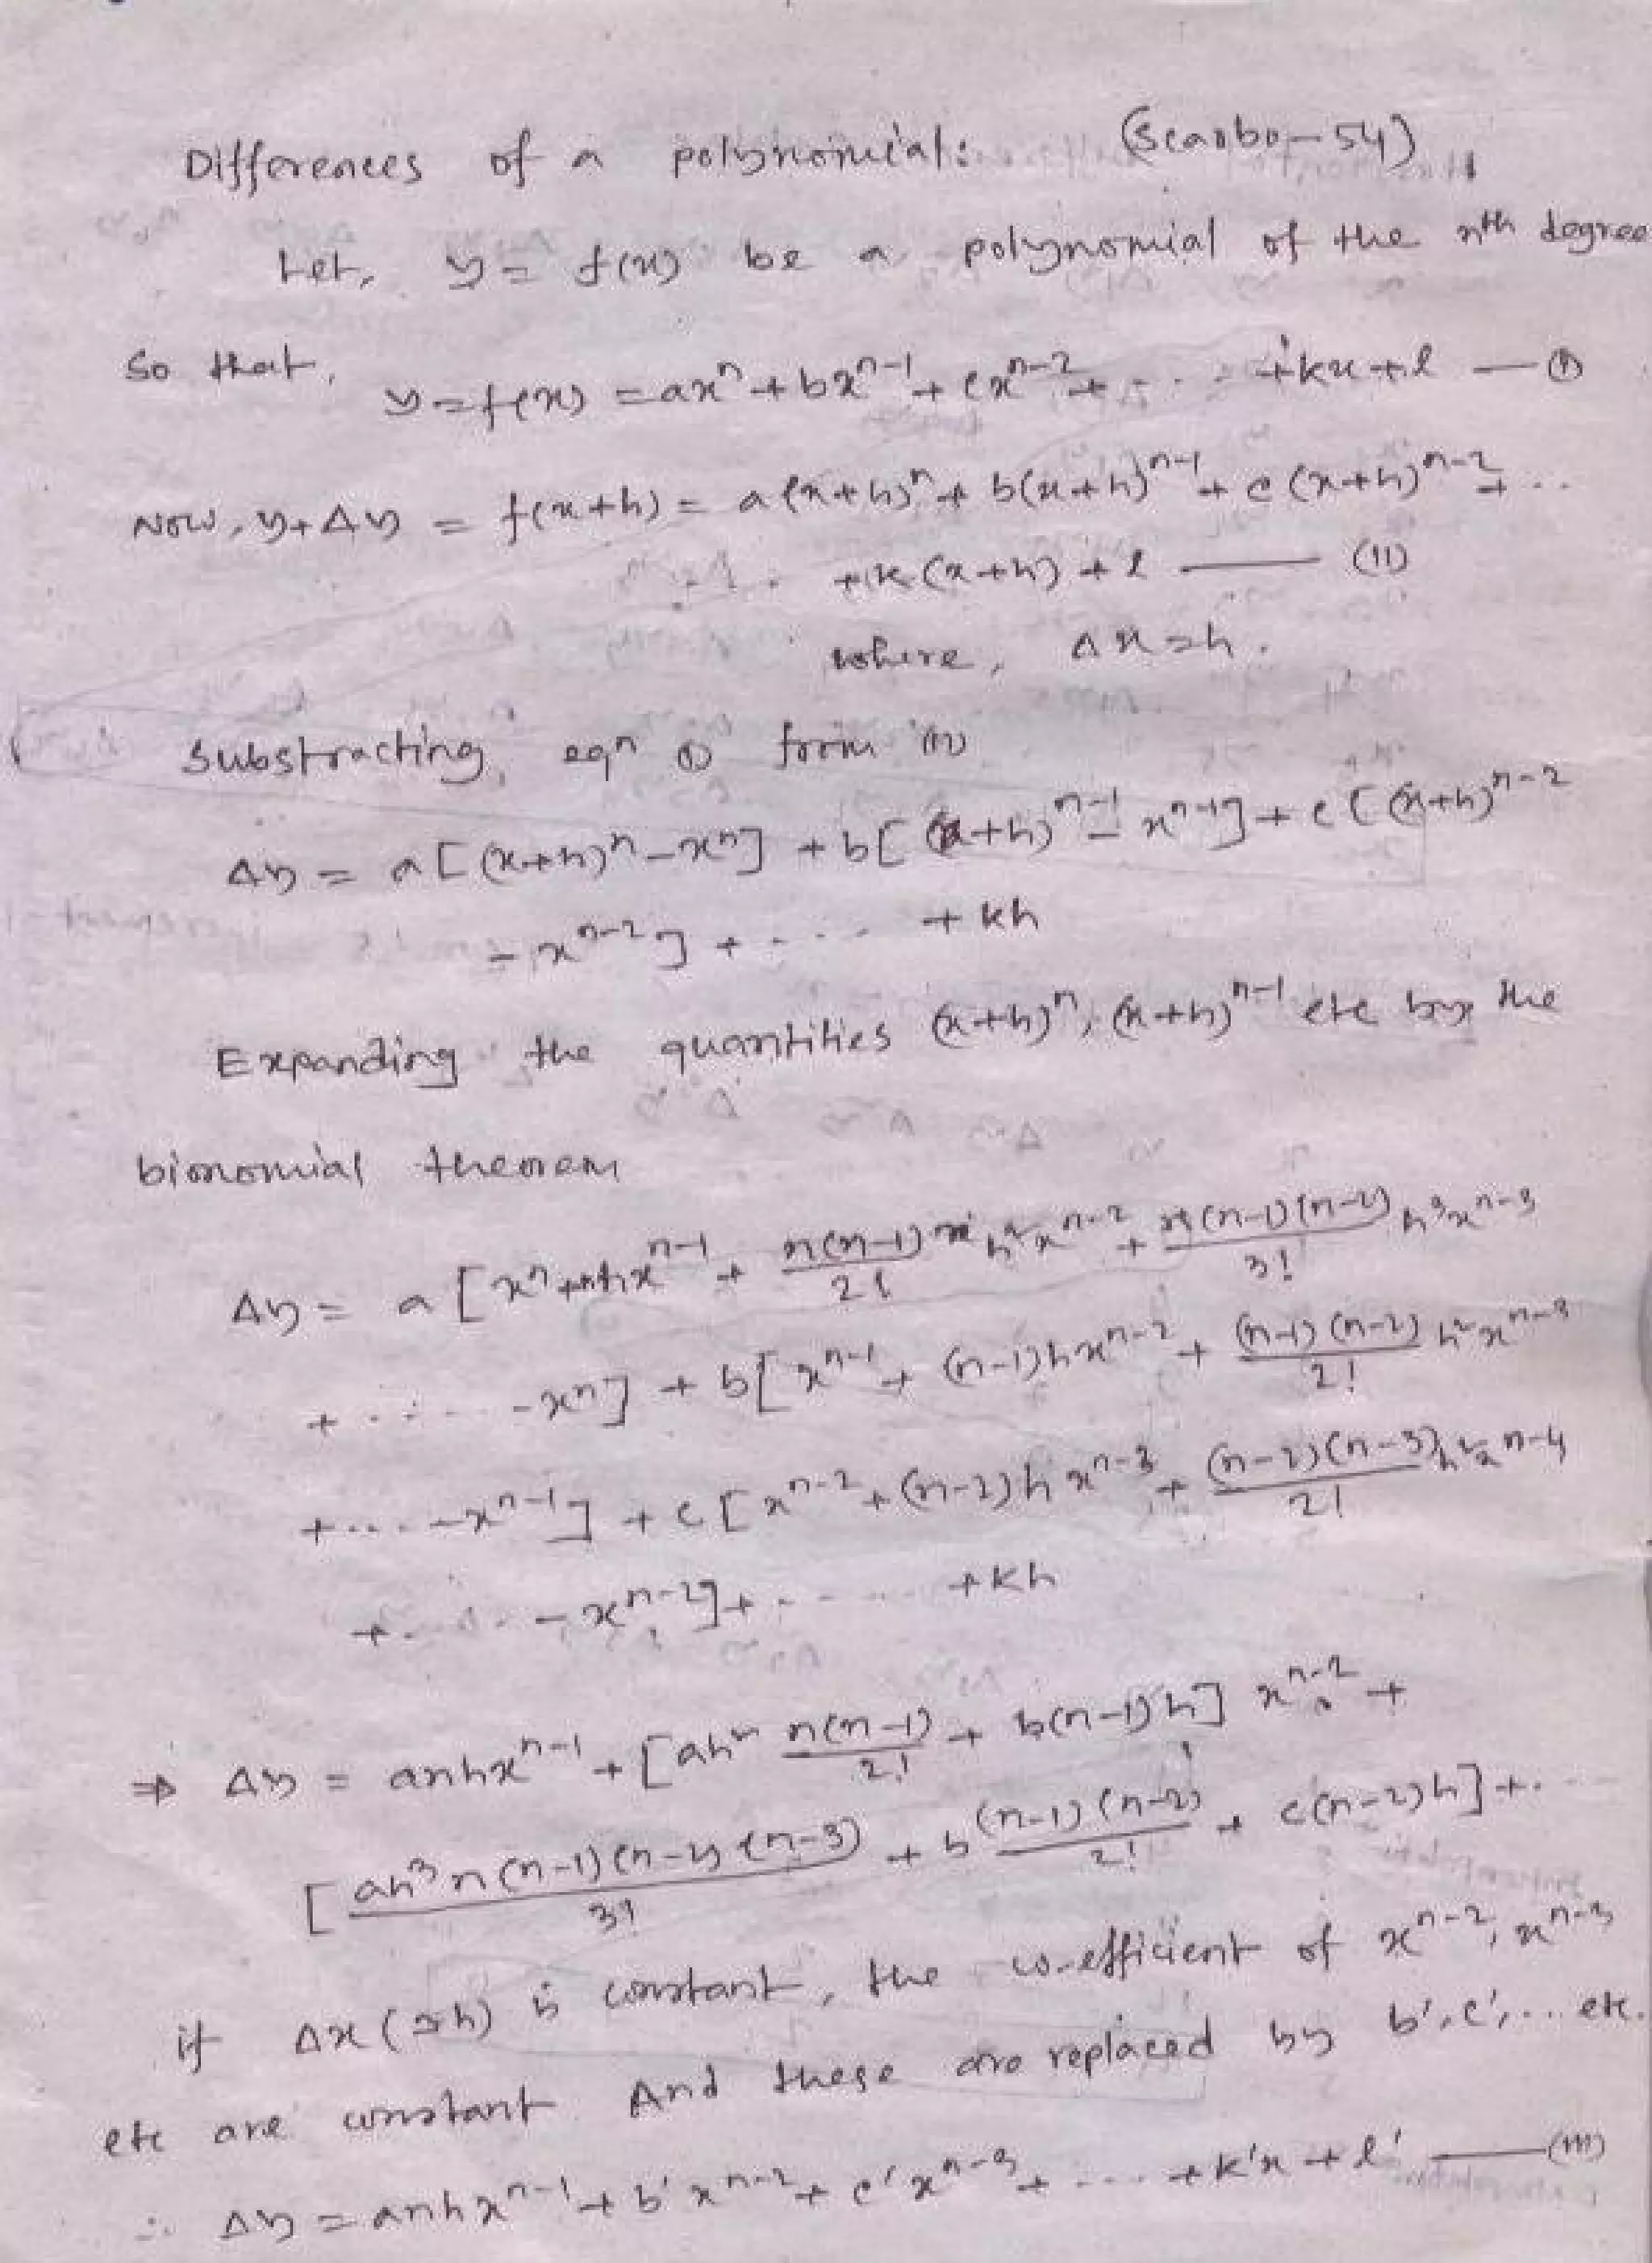 Differences of a polynomial: (Scarbo-54)
Let, y = f(x) be a polynomial of the nth degree
So that,
y = f(x) = ax^n + bx^{n-1} + cx^{n-2} + ... + kx + l — (I)
Now, y+Δy = f(x+h) = a(x+h)^n + b(x+h)^{n-1} + c(x+h)^{n-2} + ...
+k(x+h) + l — (II)
where, Δx = h.
Substracting, eqn (I) from (II)
Δy = a[(x+h)^n - x^n] + b[(x+h)^{n-1} - x^{n-1}] + c[(x+h)^{n-2}
- x^{n-2}] + .... + kh
Expanding the quantities (x+h)^n, (x+h)^{n-1} etc by the
bionomial theorem
Δy = a[x^n + nhx^{n-1} + \frac{n(n-1)}{2!} h^2x^{n-2} + \frac{n(n-1)(n-2)}{3!} h^3x^{n-3}
+ ..... - x^n] + b[x^{n-1} + (n-1)hx^{n-2} + \frac{(n-1)(n-2)}{2!} h^2x^{n-3}
+ ... - x^{n-1}] + c[x^{n-2} + (n-2)hx^{n-3} + \frac{(n-2)(n-3)}{2!} h^2x^{n-4}
+ ..... - x^{n-2}] + ..... + kh
⇒ Δy = anhx^{n-1} + [ah^2 \frac{n(n-1)}{2!} + b(n-1)h] x^{n-2} +
[\frac{ah^3n(n-1)(n-2)(n-3)}{3!} + b\frac{(n-1)(n-2)}{2!} + c(n-2)h] + ...
if Δx (=h) is constant, the co-efficient of x^{n-2}, x^{n-3}
etc are constant And these are replaced by b', c', ... etc.
∴ Δy = anhx^{n-1} + b'x^{n-2} + c'x^{n-3} + .... + k'x + l' — (III)